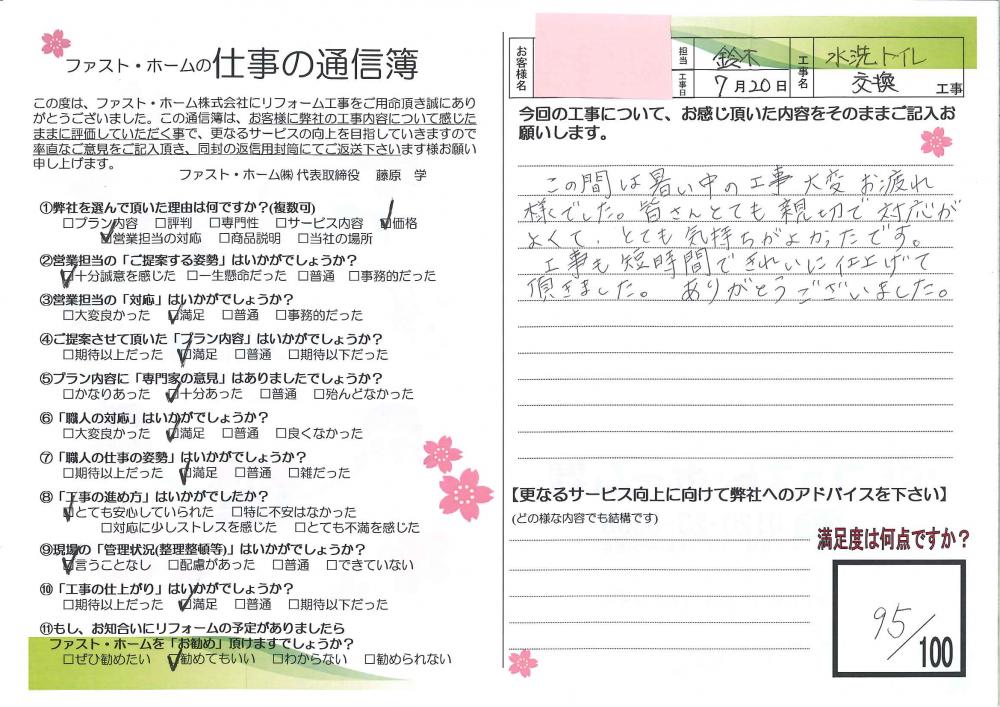 ファスト・ホームの仕事の通信簿
この度は、ファスト・ホーム株式会社にリフォーム工事をご用命頂き誠にあり
がとうございました。この通信簿は、お客様に弊社の工事内容について感じた
ままに評価していただく事で、更なるサービスの向上を目指していきますので
率直なご意見をご記入頂き、同封の返信用封筒にてご返送下さいます様お願い
申し上げます。
ファスト・ホーム㈱ 代表取締役 藤原 学
①弊社を選んで頂いた理由は何ですか？(複数可)
□プラン内容 □評判 □専門性 □サービス内容 ☑価格
☑営業担当の対応 □商品説明 □当社の場所
②営業担当の「ご提案する姿勢」はいかがでしょうか？
☑十分誠意を感じた □一生懸命だった □普通 □事務的だった
③営業担当の「対応」はいかがでしょうか？
□大変良かった ☑満足 □普通 □事務的だった
④ご提案させて頂いた「プラン内容」はいかがでしょうか？
□期待以上だった ☑満足 □普通 □期待以下だった
⑤プラン内容に「専門家の意見」はありましたでしょうか？
□かなりあった ☑十分あった □普通 □殆んどなかった
⑥「職人の対応」はいかがでしょうか？
□大変良かった ☑満足 □普通 □良くなかった
⑦「職人の仕事の姿勢」はいかがでしょうか？
□期待以上だった ☑満足 □普通 □雑だった
⑧「工事の進め方」はいかがでしたか？
☑とても安心していられた □特に不安はなかった
□対応に少しストレスを感じた □とても不満を感じた
⑨現場の「管理状況(整理整頓等)」はいかがでしょうか？
☑言うことなし □配慮があった □普通 □できていない
⑩「工事の仕上がり」はいかがでしょうか？
□期待以上だった ☑満足 □普通 □期待以下だった
⑪もし、お知合いにリフォームの予定がありましたら
ファスト・ホームを「お勧め」頂けますでしょうか？
□ぜひ勧めたい ☑勧めてもいい □わからない □勧められない
お客様名
担当 鈴木
工事日 7月20日
工事名 水洗トイレ
交換 工事
今回の工事について、お感じ頂いた内容をそのままご記入お
願いします。
この間は暑い中の工事大変お疲れ
様でした。皆さんとても親切で対応が
よくて、とても気持ちがよかったです。
工事も短時間できれいに仕上げて
頂きました。ありがとうございました。
【更なるサービス向上に向けて弊社へのアドバイスを下さい】
(どの様な内容でも結構です)
満足度は何点ですか？
95/100